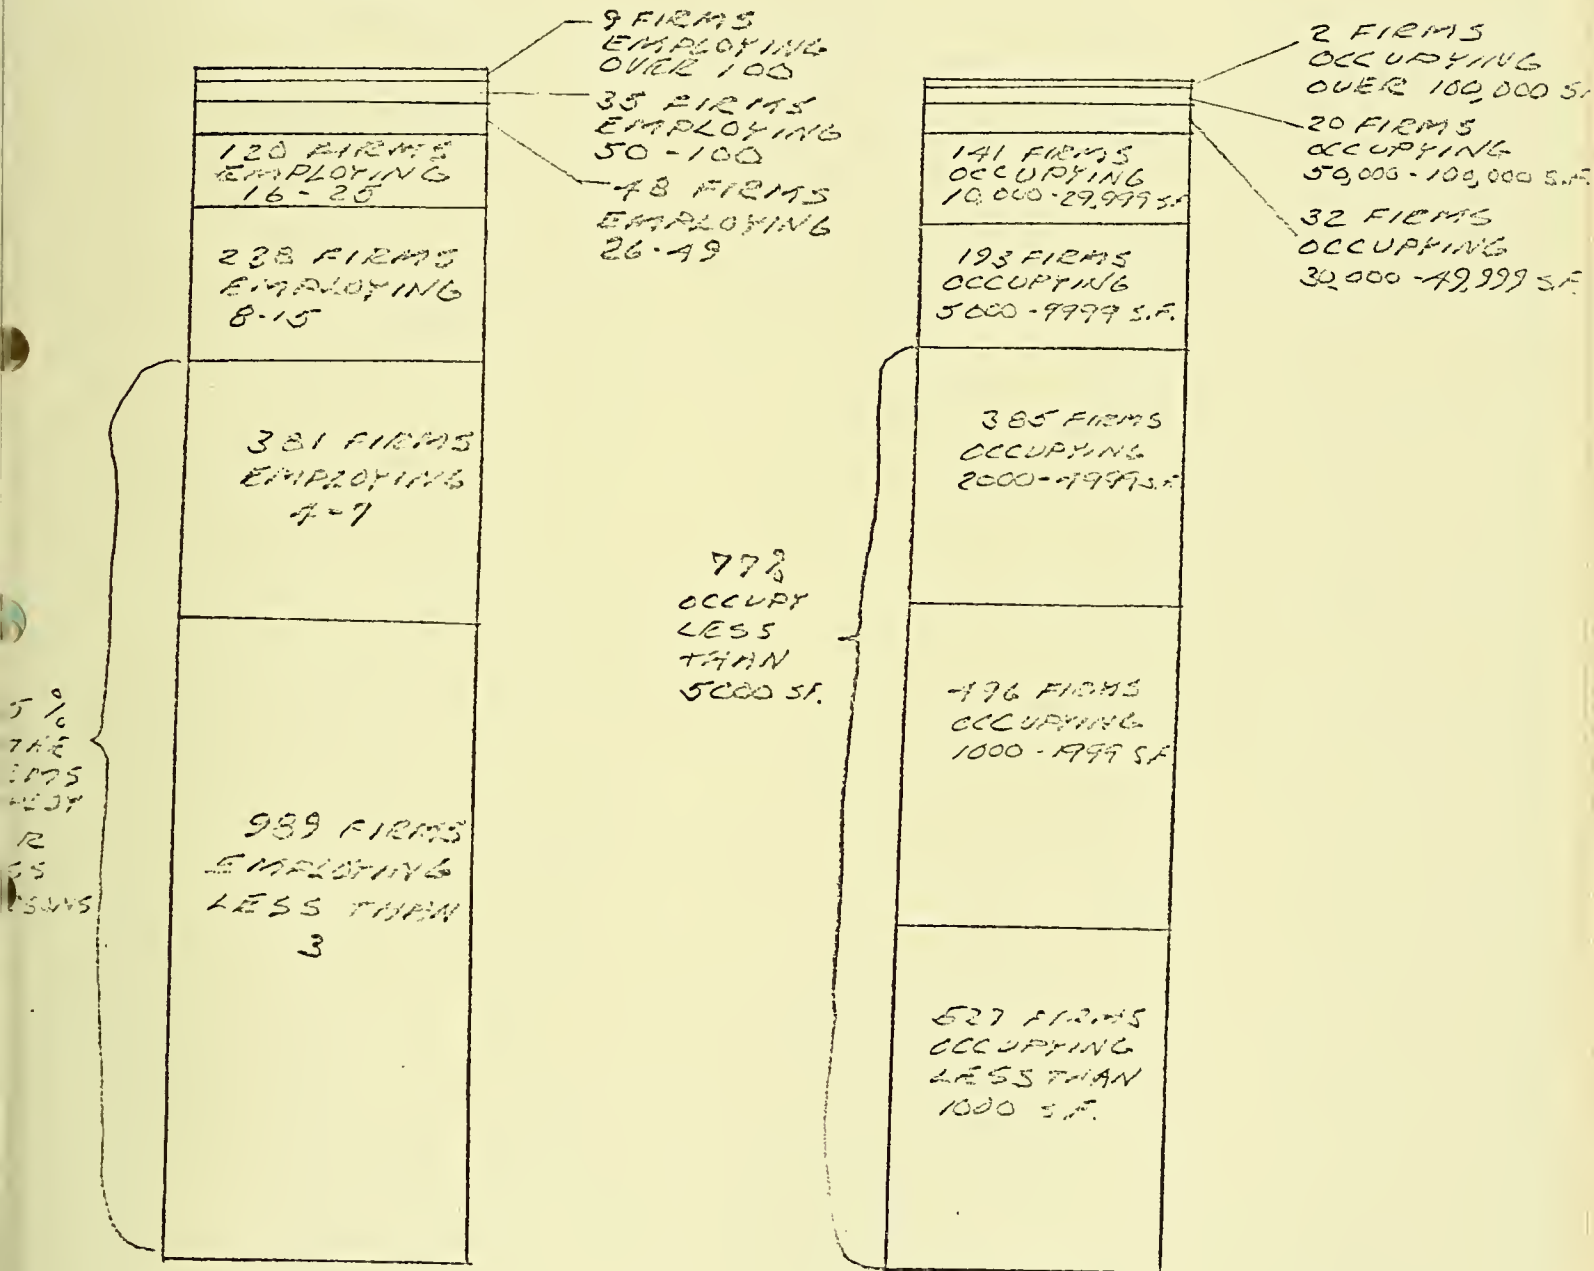 9 FIRMS
EMPLOYING
OVER 100
35 FIRMS
EMPLOYING
50-100
48 FIRMS
EMPLOYING
26-49
120 FIRMS
EMPLOYING
16-25
238 FIRMS
EMPLOYING
8-15
381 FIRMS
EMPLOYING
4-7
989 FIRMS
EMPLOYING
LESS THAN
3
5%
THE
R
SS
2 FIRMS
OCCUPYING
OVER 100,000 S.
20 FIRMS
OCCUPYING
50,000-100,000 S.F.
32 FIRMS
OCCUPYING
30,000-49,999 S.F.
141 FIRMS
OCCUPYING
10,000-29,999 S.F.
193 FIRMS
OCCUPYING
5000-9999 S.F.
385 FIRMS
OCCUPYING
2000-4999 S.F.
496 FIRMS
OCCUPYING
1000-1999 S.F.
527 FIRMS
OCCUPYING
LESS THAN
1000 S.F.
77%
OCCUPY
LESS
THAN
5000 SF.